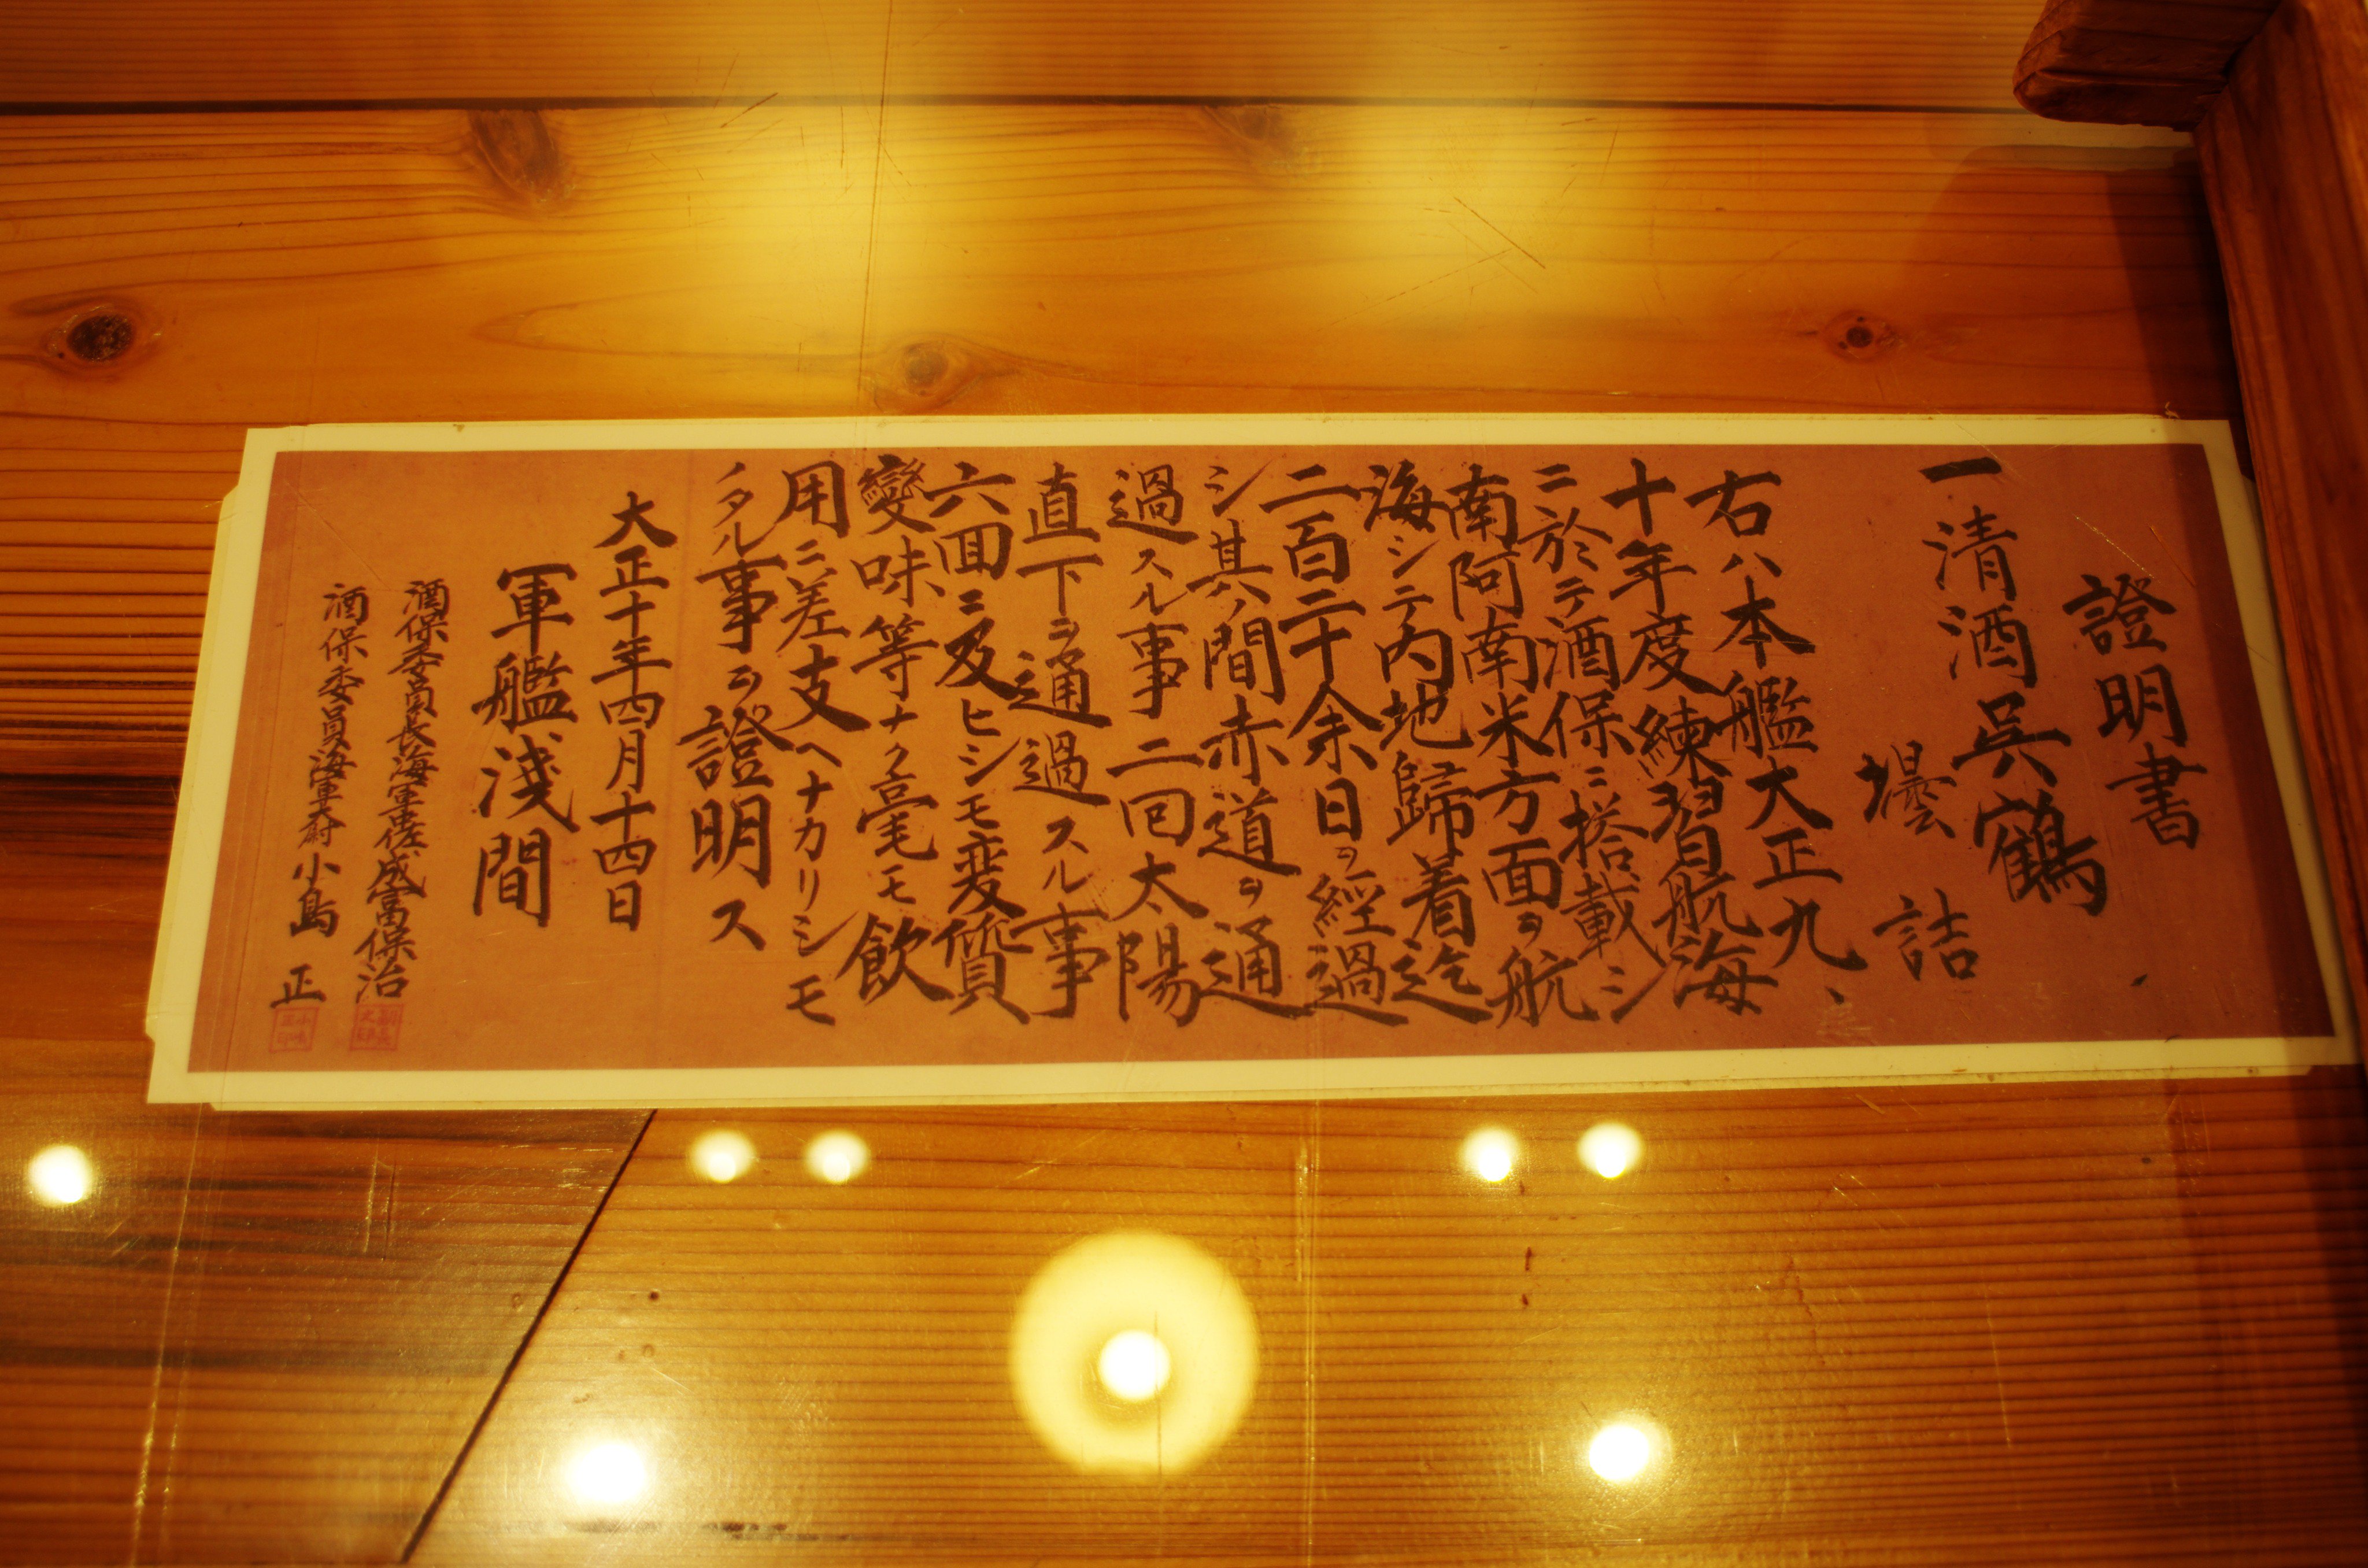 證明書
一清酒呉鶴
壜詰
右ハ本艦大正九、
十年度練習航海
ニ於テ酒保ニ搭載シ
南阿南米方面ヲ航
海シテ内地歸着迄
二百二十余日ヲ經過
シ其ノ間赤道ヲ通
過スル事二回太陽
直下ヲ通過スル事
六回ニ及ヒシモ変質
變味等ナク毫モ飲
用ニ差支ヘナカリシモ
ノタル事ヲ證明ス
大正十年四月十四日
軍艦淺間
酒保委員長海軍中佐成富保治
酒保委員海軍大尉小島正